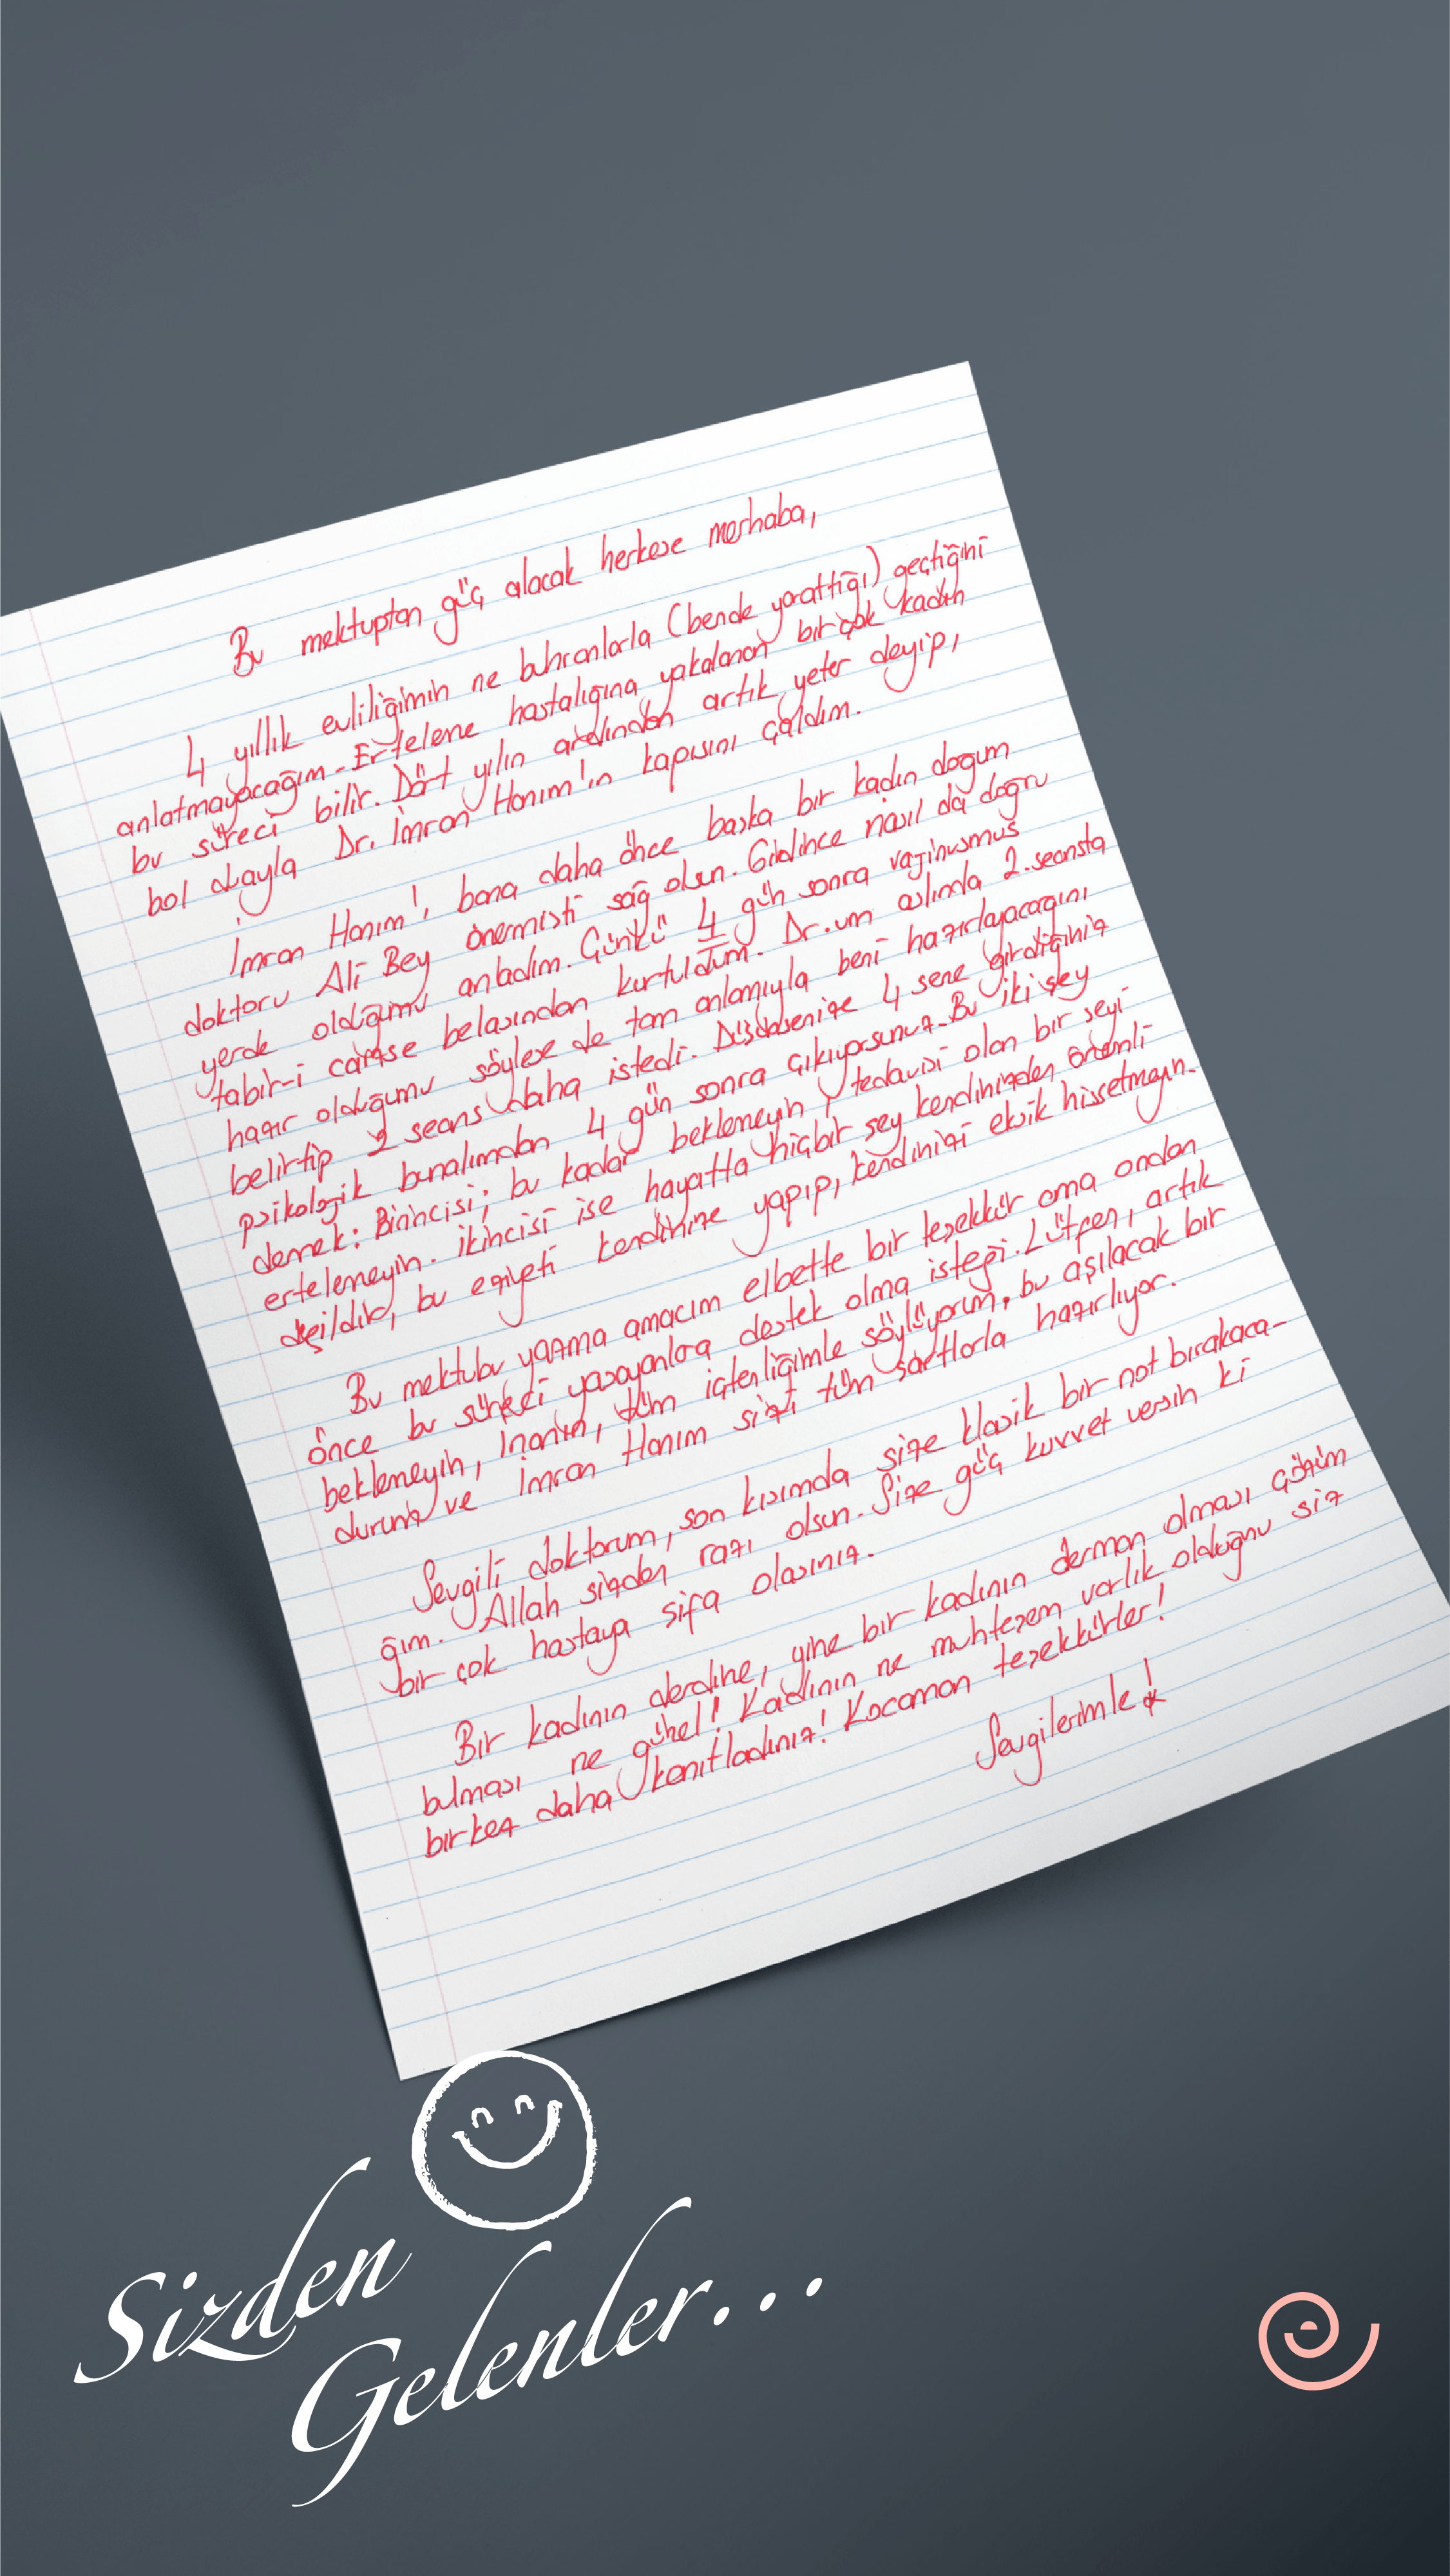 Bu mektuptan güç alacak herkese merhaba,
4 yıllık evliliğimin ne buhranlarla (bende yarattığı) geçtiğini
anlatmayacağım. Erteleme hastalığına yakalanan birçok kadın
bu süreci bilir. Dört yılın ardından artık yeter deyip,
bol duayla Dr. İmran Hanım'ın kapısını çaldım.
İmran Hanım'ı, bana daha önce başka bir kadın doğum
doktoru Ali Bey önermişti sağ olsun. Gidince nasıl da doğru
yerde olduğumu anladım. Çünkü 4 gün sonra vajinusmus
tabir-i caizse belasından kurtuldum. Dr.um aslında 2. seansta
hazır olduğumu söylese de tam anlamıyla beni hazırlayacağını
belirtip 2 seans daha istedi. Düşünsenize 4 sene girdiğiniz
psikolojik bunalımdan 4 gün sonra çıkıyorsunuz. Bu iki şey
demek: Birincisi; bu kadar beklemeyin, tedavisi olan bir şeyi
ertelemeyin. İkincisi ise hayatta hiçbir şey kendinizden önemli
değildir, bu eziyeti kendinize yapıp, kendinizi eksik hissetmeyin.
Bu mektubu yazma amacım elbette bir teşekkür ama ondan
önce bu süreci yaşayanlara destek olma isteği. Lütfen, artık
beklemeyin, inanın, tüm içtenliğimle söylüyorum, bu aşılacak bir
durum ve İmran Hanım sizi tüm şartlarla hazırlıyor.
Sevgili doktorum, son kısımda size klasik bir not bırakaca-
ğım. Allah sizden razı olsun. Size güç kuvvet versin ki
bir çok hastaya şifa olasınız.
Bir kadının derdine, yine bir kadının derman olması çözüm
bulması ne güzel! Kadının ne muhteşem varlık olduğunu siz
birkez daha kanıtladınız! Kocaman teşekkürler!
Sevgilerimle!
Sizden
Gelenler...